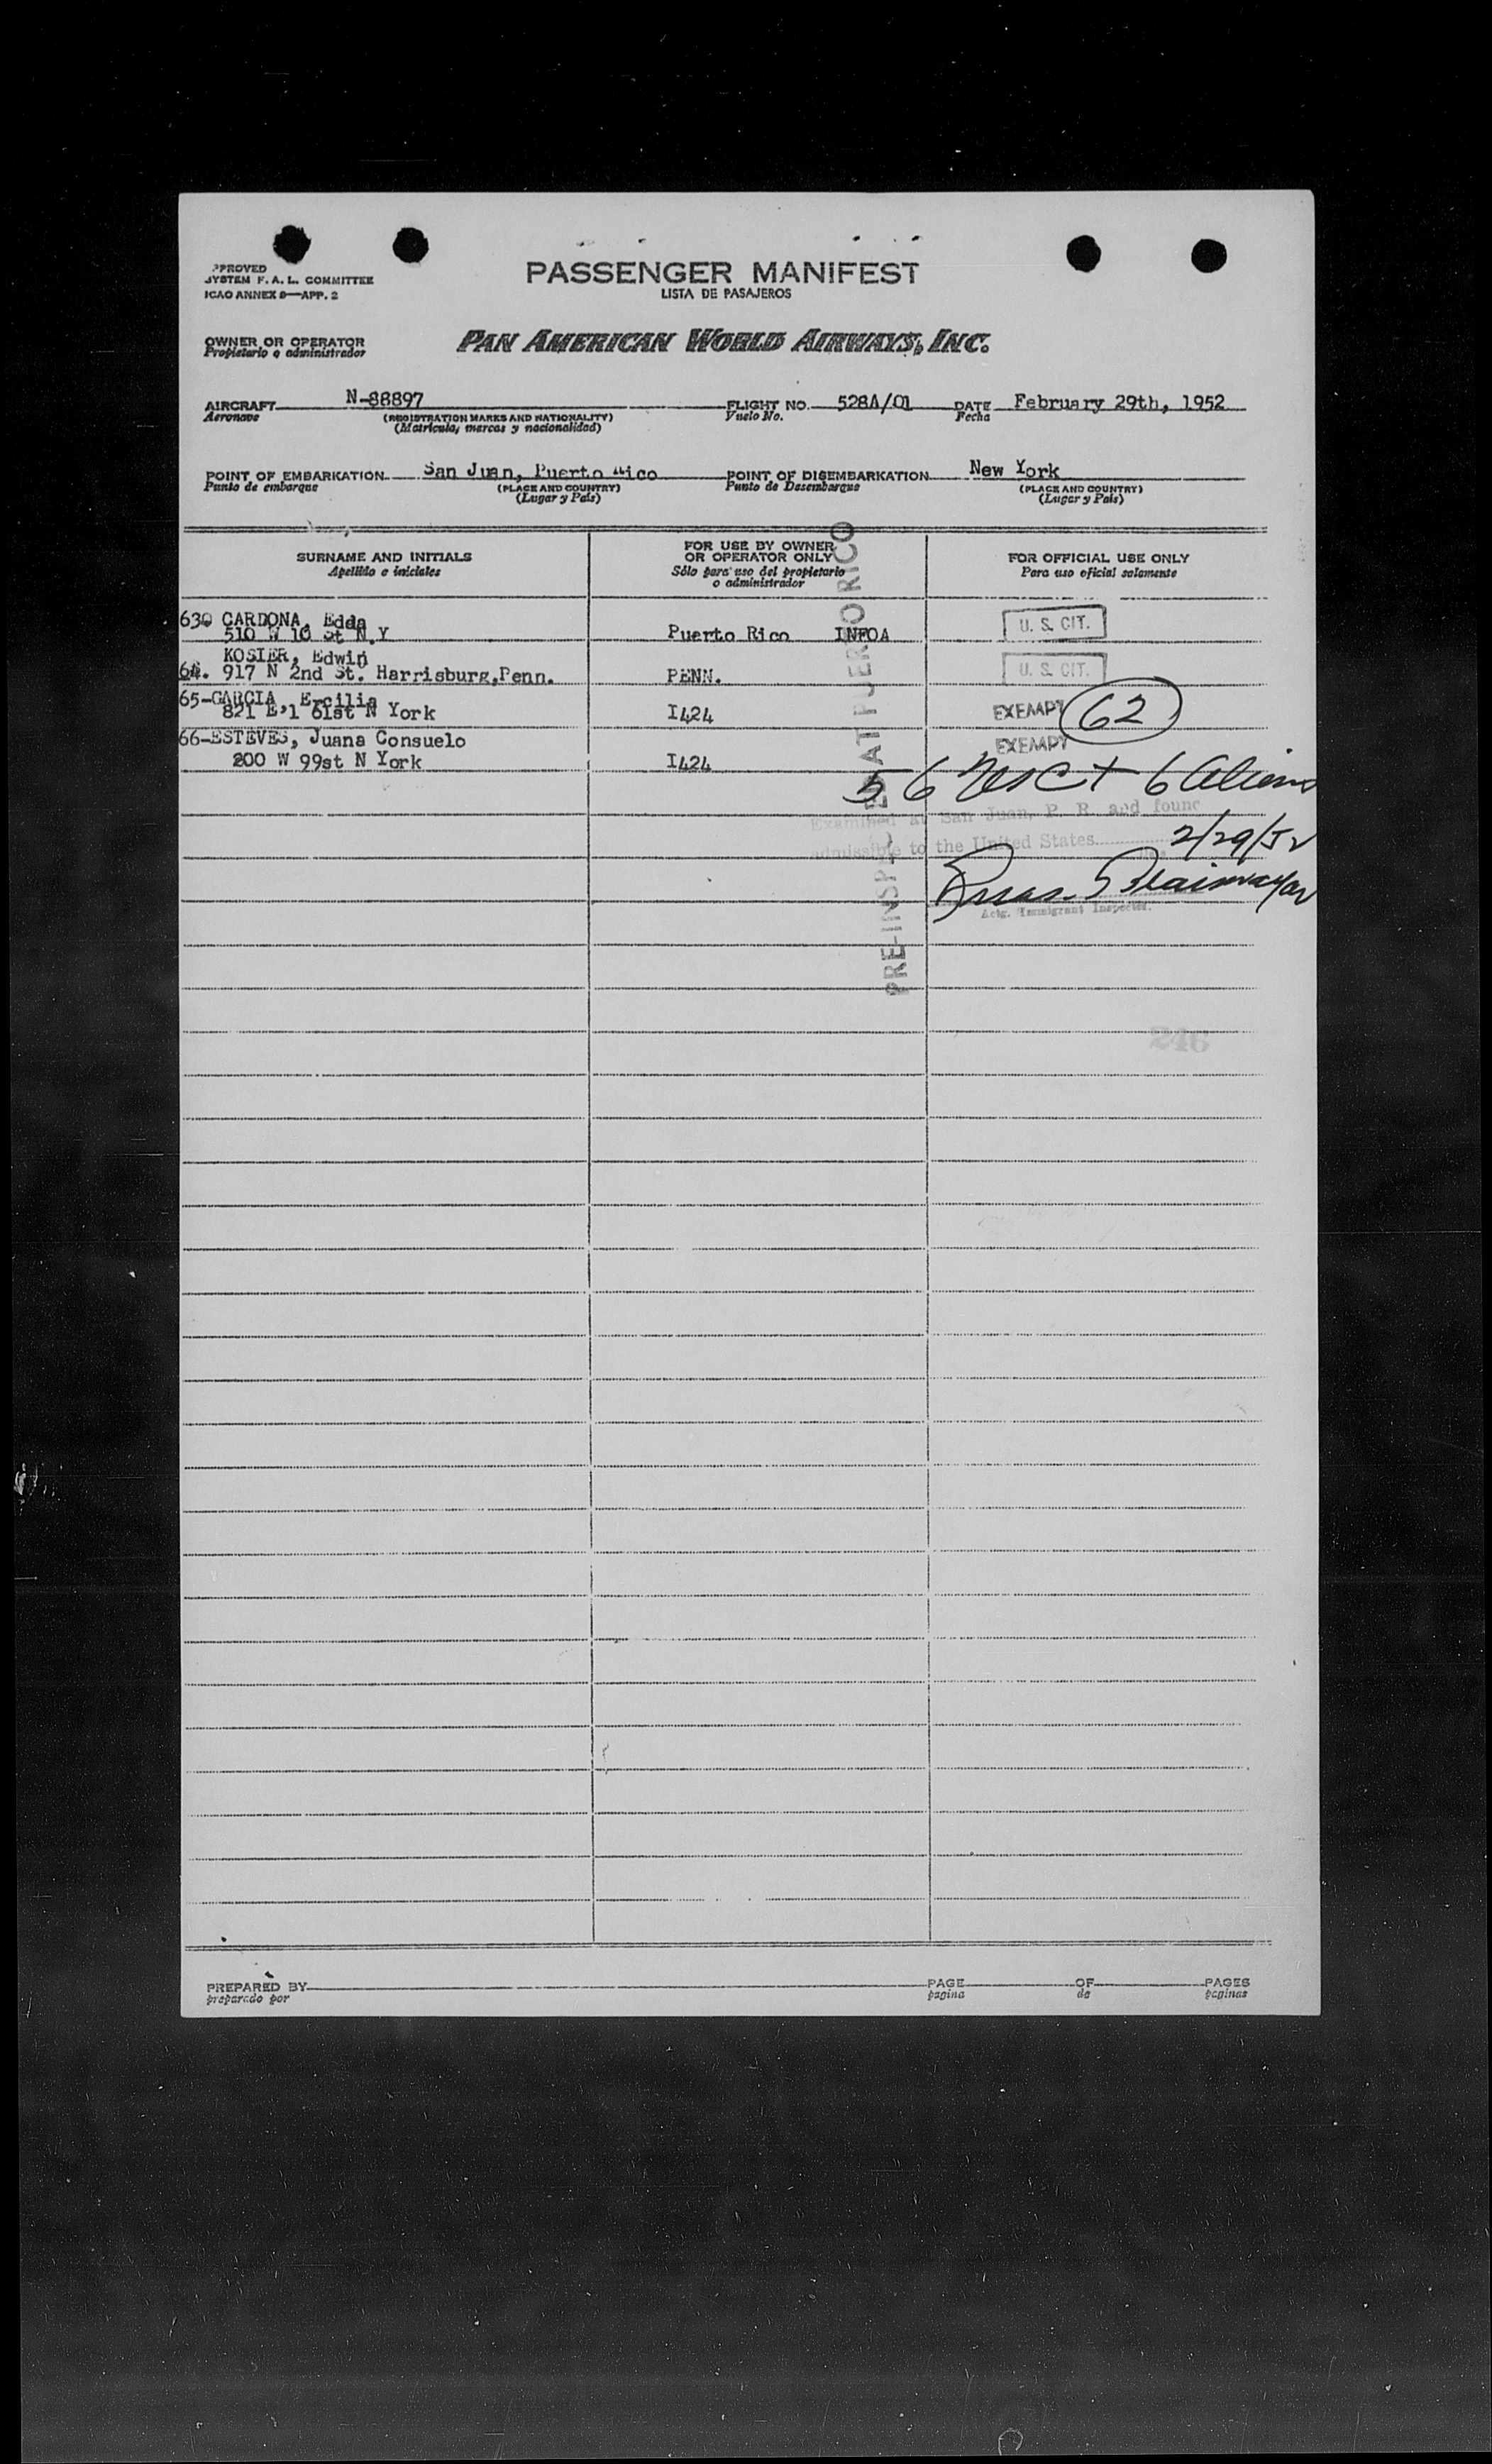 PPROVED
SYSTEM F. A. L. COMMITTEE
ICAO ANNEX 9—APP. 2
PASSENGER MANIFEST
LISTA DE PASAJEROS
OWNER OR OPERATOR
Propietario o administrador
PAN AMERICAN WORLD AIRWAYS, INC.
AIRCRAFT N-88897 FLIGHT NO. 528A/01 DATE February 29th, 1952
Aeronave (REGISTRATION MARKS AND NATIONALITY) Vuelo No. Fecha
(Matricula, marcas y nacionalidad)
POINT OF EMBARKATION San Juan, Puerto Rico POINT OF DISEMBARKATION New York
Punto de embarque (PLACE AND COUNTRY) Punto de Desembarque (PLACE AND COUNTRY)
(Lugar y País) (Lugar y País)
SURNAME AND INITIALS FOR USE BY OWNER OR OPERATOR ONLY FOR OFFICIAL USE ONLY
Apellido e iniciales Sólo para uso del propietario o administrador Para uso oficial solamente
PRE-INSPECTED AT PUERTO RICO
630 CARDONA, Edda
510 W 10 St N.Y Puerto Rico INFOA U. S. CIT.
KOSIER, Edwin
64. 917 N 2nd St. Harrisburg,Penn. PENN. U. S. CIT.
65-GARCIA, Ercilia
821 E,1 61st N York I424 EXEMPT 62
66-ESTEVES, Juana Consuelo EXEMPT
200 W 99st N York I424
56 USCt 6 Aliens
Examined at San Juan, P. R. and found
admissible to the United States 2/29/52
Actg. Immigrant Inspector.
246
PREPARED BY PAGE OF PAGES
preparado por pagina de paginas